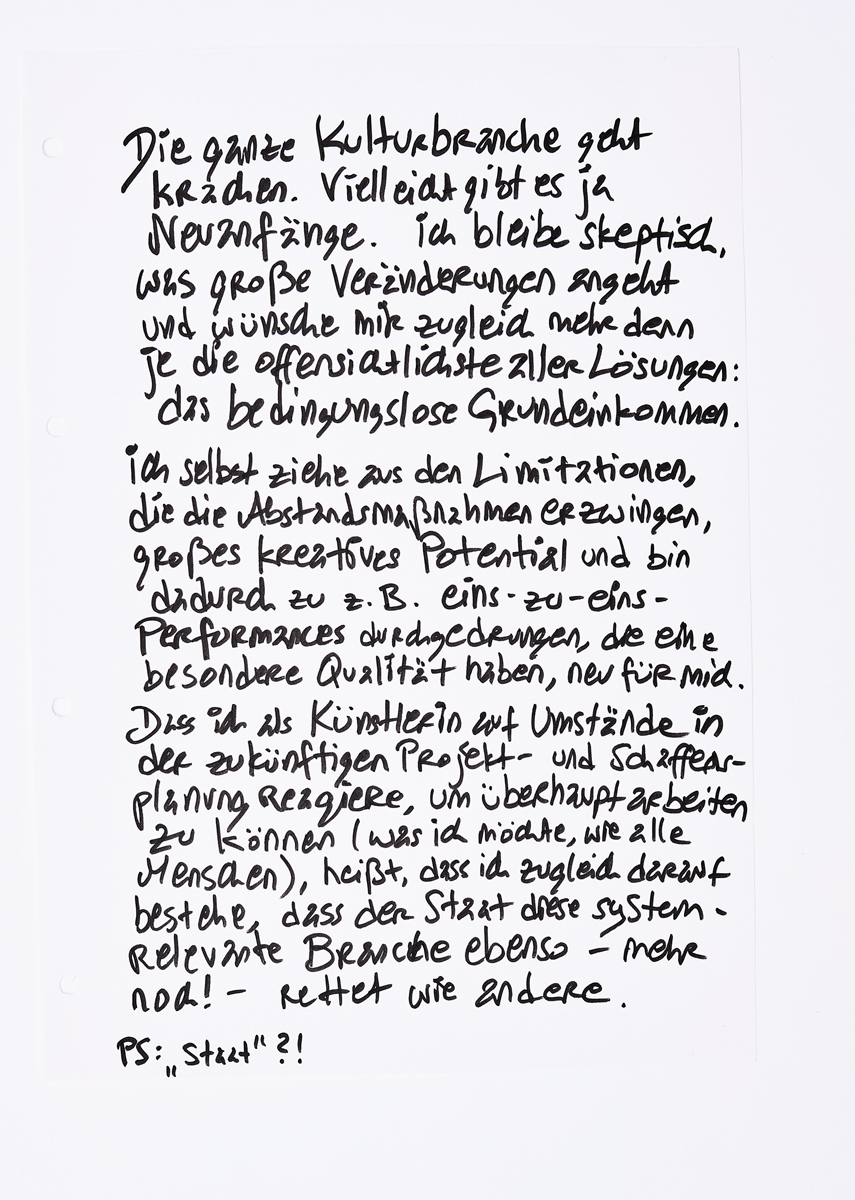 Die ganze Kulturbranche geht
krachen. Vielleicht gibt es ja
Neuanfänge. ich bleibe skeptisch,
was große Veränderungen angeht
und wünsche mir zugleich mehr denn
je die offensichtlichste aller Lösungen:
das bedingungslose Grundeinkommen.
ich selbst ziehe aus den Limitationen,
die die Abstandsmaßnahmen erzwingen,
großes kreatives Potential und bin
dadurch zu z.B. eins-zu-eins-
Performances durchgedrungen, die eine
besondere Qualität haben, neu für mich.
Dass ich als Künstlerin auf Umstände in
der zukünftigen Projekt- und Schaffens-
planung reagiere, um überhaupt arbeiten
zu können (was ich möchte, wie alle
Menschen), heißt, dass ich zugleich darauf
bestehe, dass der Staat diese system-
relevante Branche ebenso - mehr
noch! - rettet wie andere.
PS: „Staat“ ?!